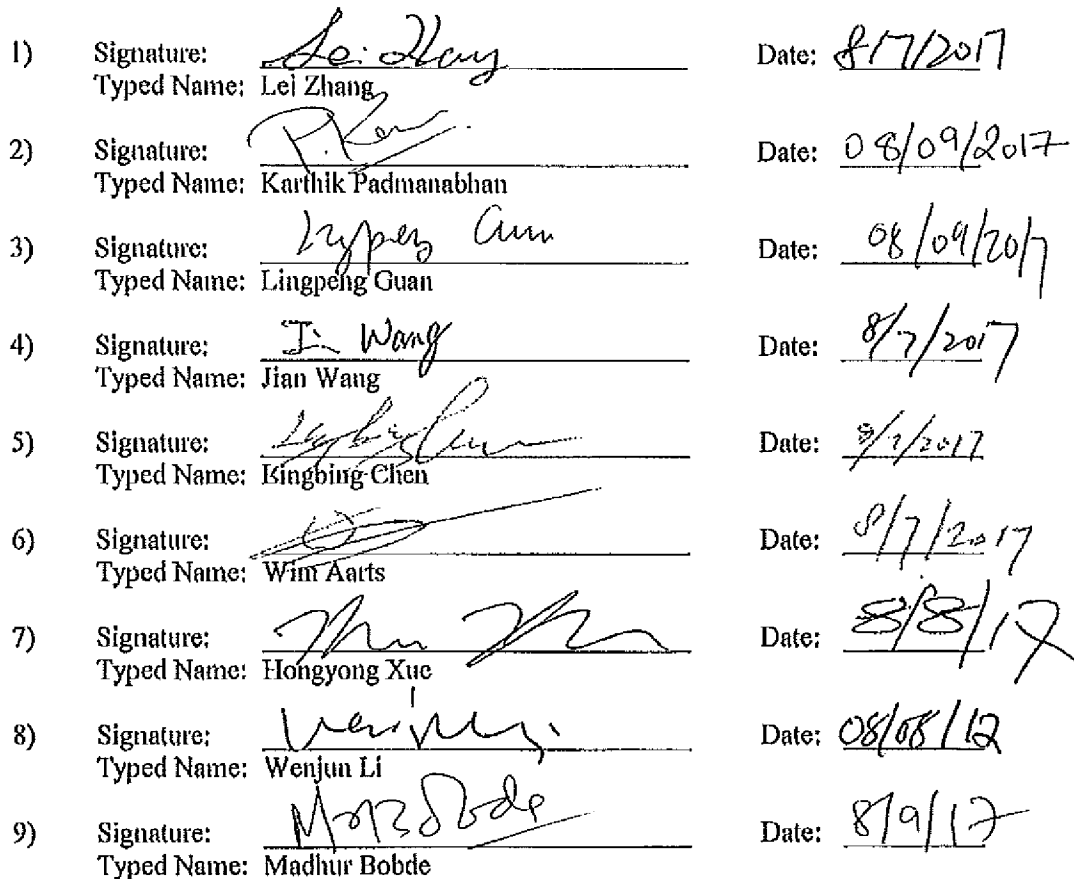 1) Signature: Lei Zhang Date: 8/7/2017
Typed Name: Lei Zhang
2) Signature: P. Kar Date: 08/09/2017
Typed Name: Karthik Padmanabhan
3) Signature: Lingpeng Guan Date: 08/09/2017
Typed Name: Lingpeng Guan
4) Signature: Ji Wang Date: 8/7/2017
Typed Name: Jian Wang
5) Signature: Date: 8/7/2017
Typed Name: Lingbing Chen
6) Signature: Date: 8/7/2017
Typed Name: Wim Aarts
7) Signature: Date: 8/8/17
Typed Name: Hongyong Xue
8) Signature: Date: 08/08/17
Typed Name: Wenjun Li
9) Signature: M Bobde Date: 8/9/17
Typed Name: Madhur Bobde